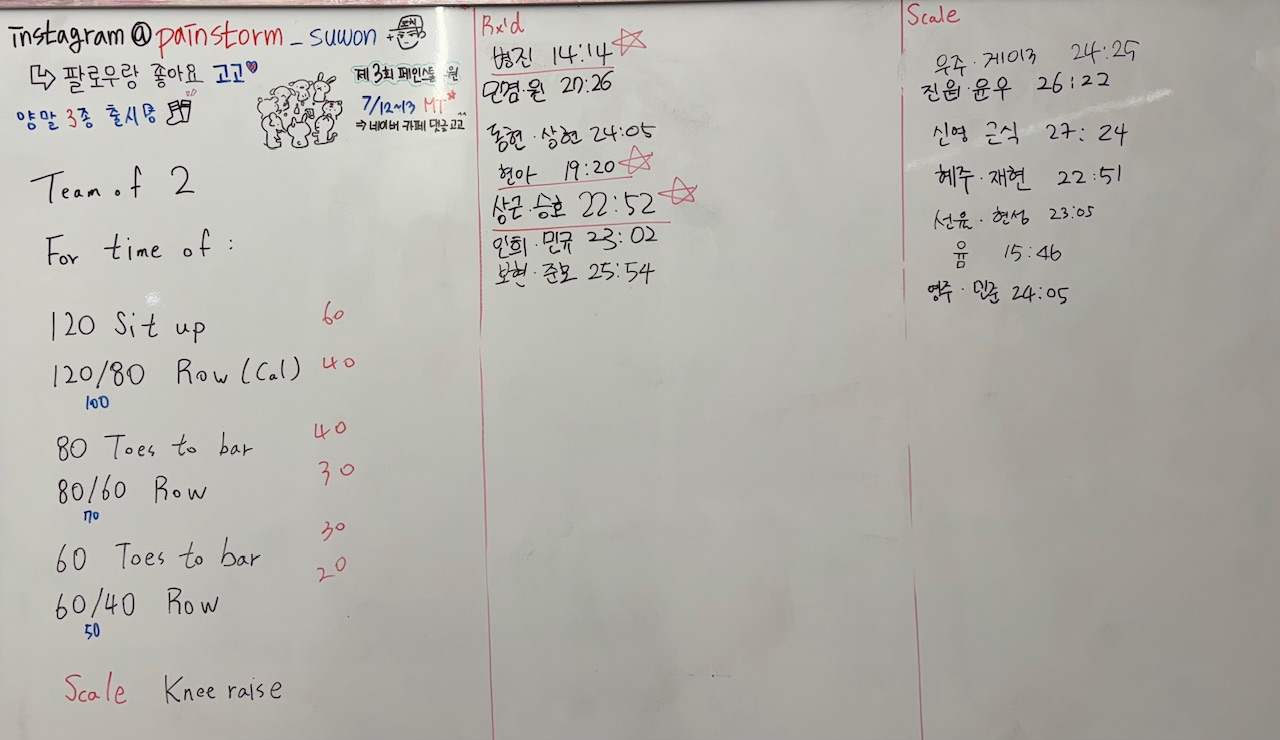 instagram@painstorm_suwon
팔로우랑 좋아요 고고
양말 3종 출시중
제3회 페인스톰 수원
7/12~13 MT
⇒ 네이버 카페 댓글고고^^
Team of 2
For time of :
120 Sit up 60
120/80 Row (Cal) 40
100
80 Toes to bar 40
80/60 Row 30
70
60 Toes to bar 30
60/40 Row 20
50
Scale Knee raise
Rx'd
병진 14:14
민겸·원 20:26
동현·상현 24:05
현아 19:20
상근·승호 22:52
인희·민규 23:02
보현·준모 25:54
Scale
우주·게이಼ 24:25
진원·윤우 26:22
신영 근식 27:24
혜주·재현 22:51
선유·현성 23:05
윰 15:46
영주·민준 24:05